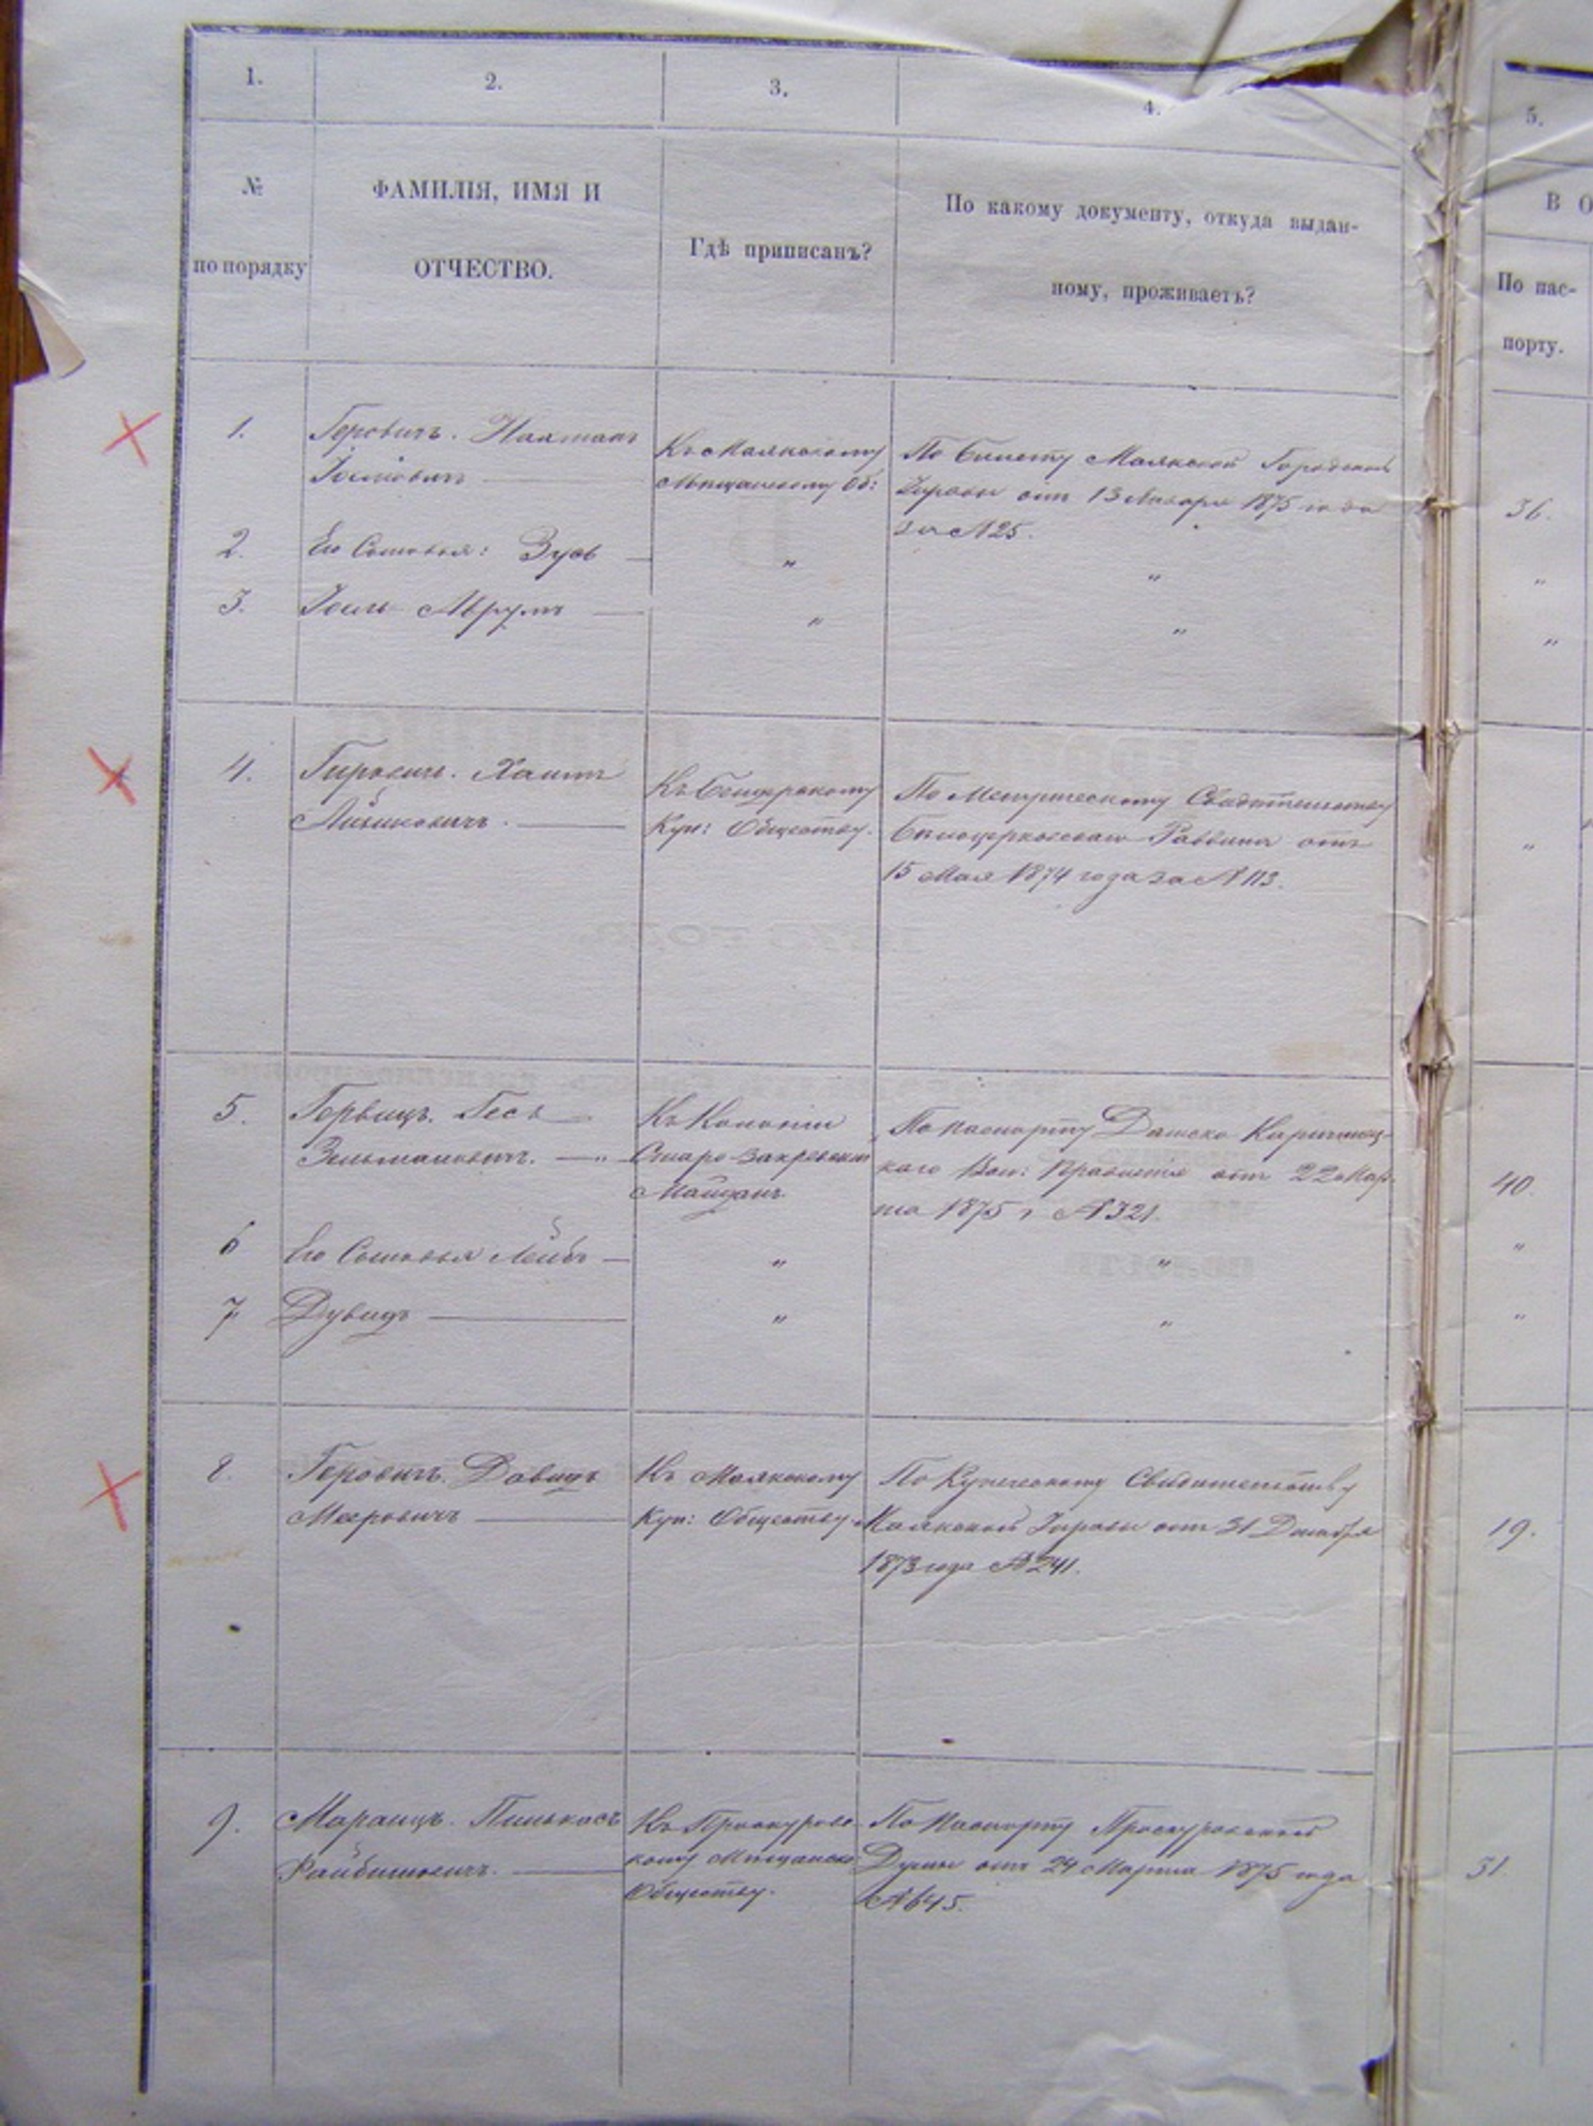 1.
2.
3.
4.
5.
№
по порядку
ФАМИЛІЯ, ИМЯ И
ОТЧЕСТВО.
Гдѣ приписанъ?
По какому документу, откуда выдан-
ному, проживаетъ?
В О
По пас-
порту.
1.
Геровичъ.
Къ Маякскому
Мѣщанскому Об:
По билету Маякской Городской
Управы отъ 13 Января 1875 года
за № 25.
36.
2.
Его Сыновья: Зусь
"
"
"
3.
Іось Аврумъ
"
"
"
4.
Геровичъ. Хаимъ
Къ Бендерскому
Куп: Обществу.
По Метрическому Свидѣтельству
Бѣлоцерковскаго Раввина отъ
15 Мая 1874 года за № 113.
"
5.
Гервицъ. Гесь
Зельмановичъ. — " —
Къ Колоніи
Старо-Закревский
Майданъ.
По паспорту Дашево
Вол: Правленія отъ 22 Мар-
та 1875 г № 321.
40.
6
Его Сыновья Лейбъ
"
"
"
7
Дувидъ
"
"
"
8.
Геровичъ. Давидъ
Мееровичъ
Къ Маякскому
Куп: Обществу.
По Купеческому Свидѣтельству
Маякской Управы отъ 31 Декабря
1873 года № 241.
19.
9.
Маранцъ. Пинькасъ
Файбишовичъ.
Къ Проскуровс-
кому Мѣщанско
Обществу.
По Паспорту Проскуровской
Думы отъ 24 Марта 1875 года
№ 645.
31.